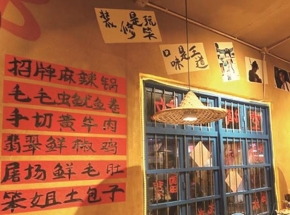 装修是玩笑
口味是王道
招牌麻辣锅
毛毛虫鱿鱼卷
手切黄牛肉
翡翠鲜椒鸡
屠场鲜毛肚
笨姐土包子